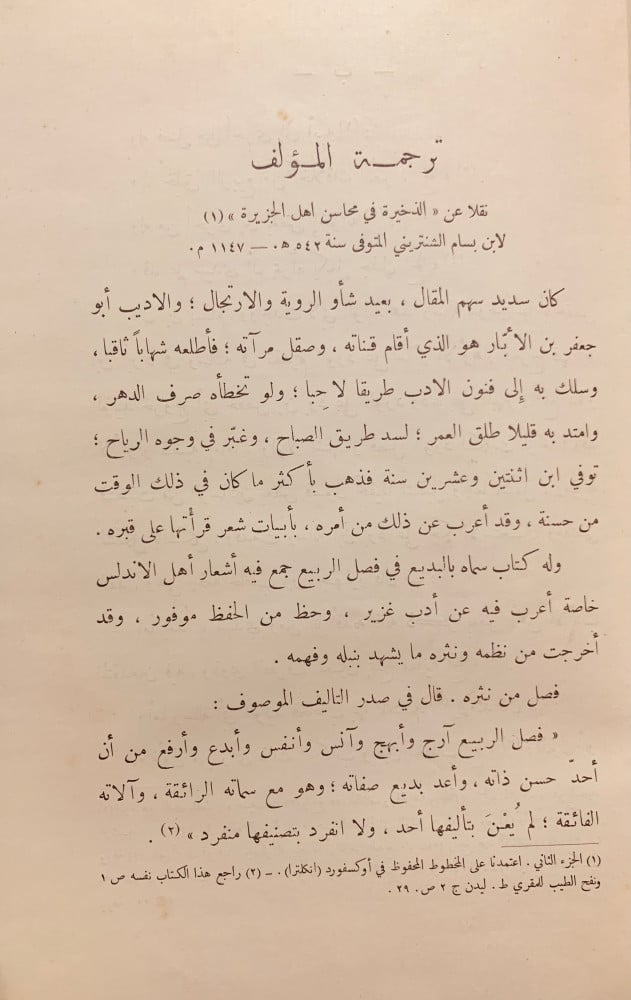 ترجمة المؤلف
نقلا عن « الذخيرة في محاسن اهل الجزيرة » (١)
لابن بسام الشنتريني المتوفى سنة ٥٤٢ هـ. — ١١٤٧ م.
كان سديد سهم المقال ، بعيد شأو الروية والارتجال ؛ والاديب أبو
جعفر بن الأبّار هو الذي أقام قناته ، وصقل مرآته ؛ فأطلعه شهاباً ثاقبا ،
وسلك به إلى فنون الادب طريقا لاحِبا ؛ ولو تخطأه صرف الدهر ،
وامتد به قليلا طلق العمر ؛ لسد طريق الصباح ، وغبّر في وجوه الرياح ؛
توفي ابن اثنتين وعشرين سنة فذهب بأكثر ما كان في ذلك الوقت
من حسنة ، وقد أعرب عن ذلك من أمره ، بأبيات شعر قرأتها على قبره .
وله كتاب سماه بالبديع في فصل الربيع جمع فيه أشعار أهل الاندلس
خاصة أعرب فيه عن أدب غزير ، وحظ من الحفظ موفور ، وقد
أخرجت من نظمه ونثره ما يشهد بنبله وفهمه .
فصل من نثره . قال في صدر التاليف الموصوف :
« فصل الربيع آرج وأبهج وآنس وأنفس وأبدع وأرفع من أن
أحدّ حسن ذاته ، وأعد بديع صفاته ؛ وهو مع سماته الرائقة ، وآلاته
الفائقة ؛ لم يُعْنَ بتأليفها أحد ، ولا انفرد بتصنيفها منفرد » (٢) .
(١) الجزء الثاني . اعتمدنا على المخطوط المحفوظ في أوكسفورد (انكلترا) . – (٢) راجع هذا الكتاب نفسه ص ١
ونفح الطيب للمقري ط . ليدن ج ٢ ص . ٢٩ .